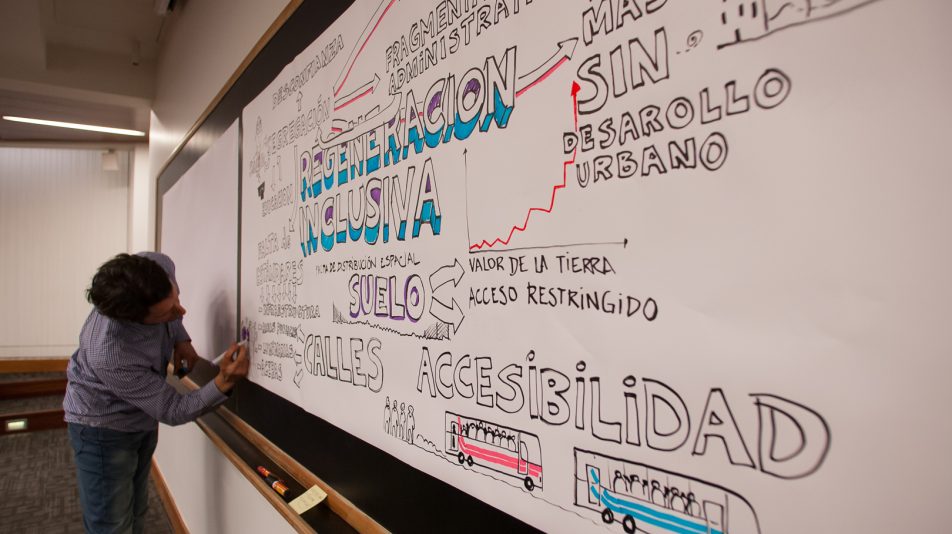 DESCONFIANZA
FRAGMENTA
ADMINISTRATI
MÁS
SIN
DESAROLLO
URBANO
SEGREGACIÓN
REGENERACIÓN
INCLUSIVA
FALTA de
FALTA DE DISTRIBUCIÓN ESPACIAL
SUELO
VALOR DE LA TIERRA
ACCESO RESTRINGIDO
CALLES
ACCESIBILIDAD